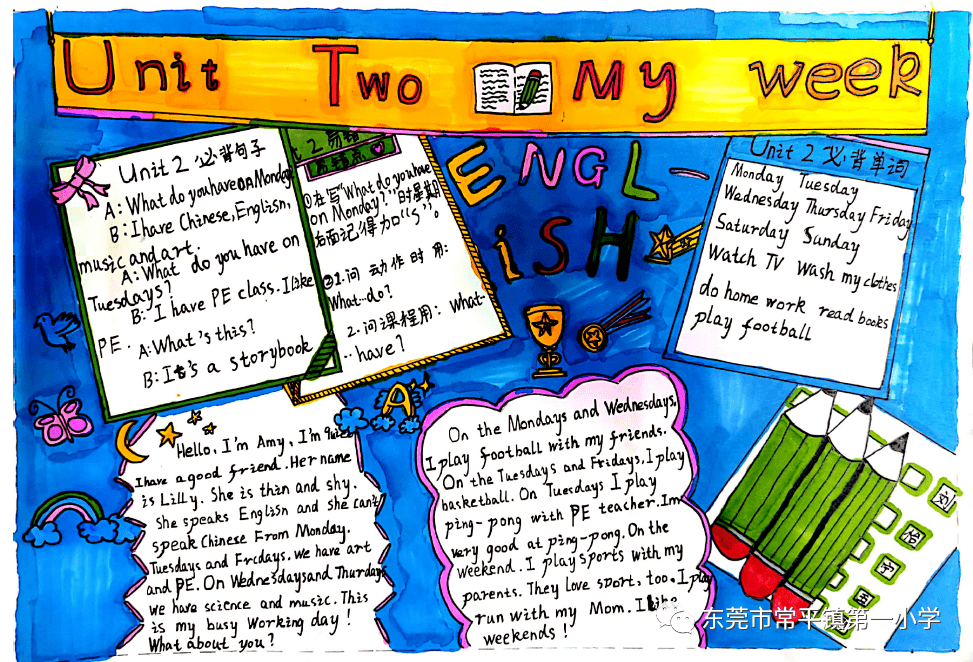 Unit Two My week
Unit 2 必背句子
A: What do you have on Monday
B: I have Chinese, Englisn,
music and art.
A: What do you have on
Tuesdays?
B: I have PE class. I like
PE.
A: What's this?
B: It's a storybook
2. 易错
易错点
①在写"What do you have
on Monday?"时星期
后面记得加"s"。
②1. 问动作时用:
What...do?
2. 问课程用: what...
...have?
ENGL-
iSH
Unit 2 必背单词
Monday Tuesday
Wednesday Thursday Friday
Saturday Sunday
Watch TV wash my clothes
do home work read books
play football
A
Hello, I'm Amy, I'm
I have a good friend. Her name
is Lilly. She is thin and shy.
She speaks Englisn and she can't
speak Chinese From Monday.
Tuesdays and Fridays. we have art
and PE. On Wednesdays and Thurdays
we have science and music. This
is my busy working day!
What about you?
On the Mondays and Wednesdays,
I play football with my friends.
On the Tuesdays and Fridays, I play
basketball. On Tuesdays I play
ping-pong with PE teacher. Im
very good at ping-pong. On the
weekend. I play sports with my
parents. They love sport, too. I play
run with my Mom. I like
weekends!
东莞市常平镇第一小学